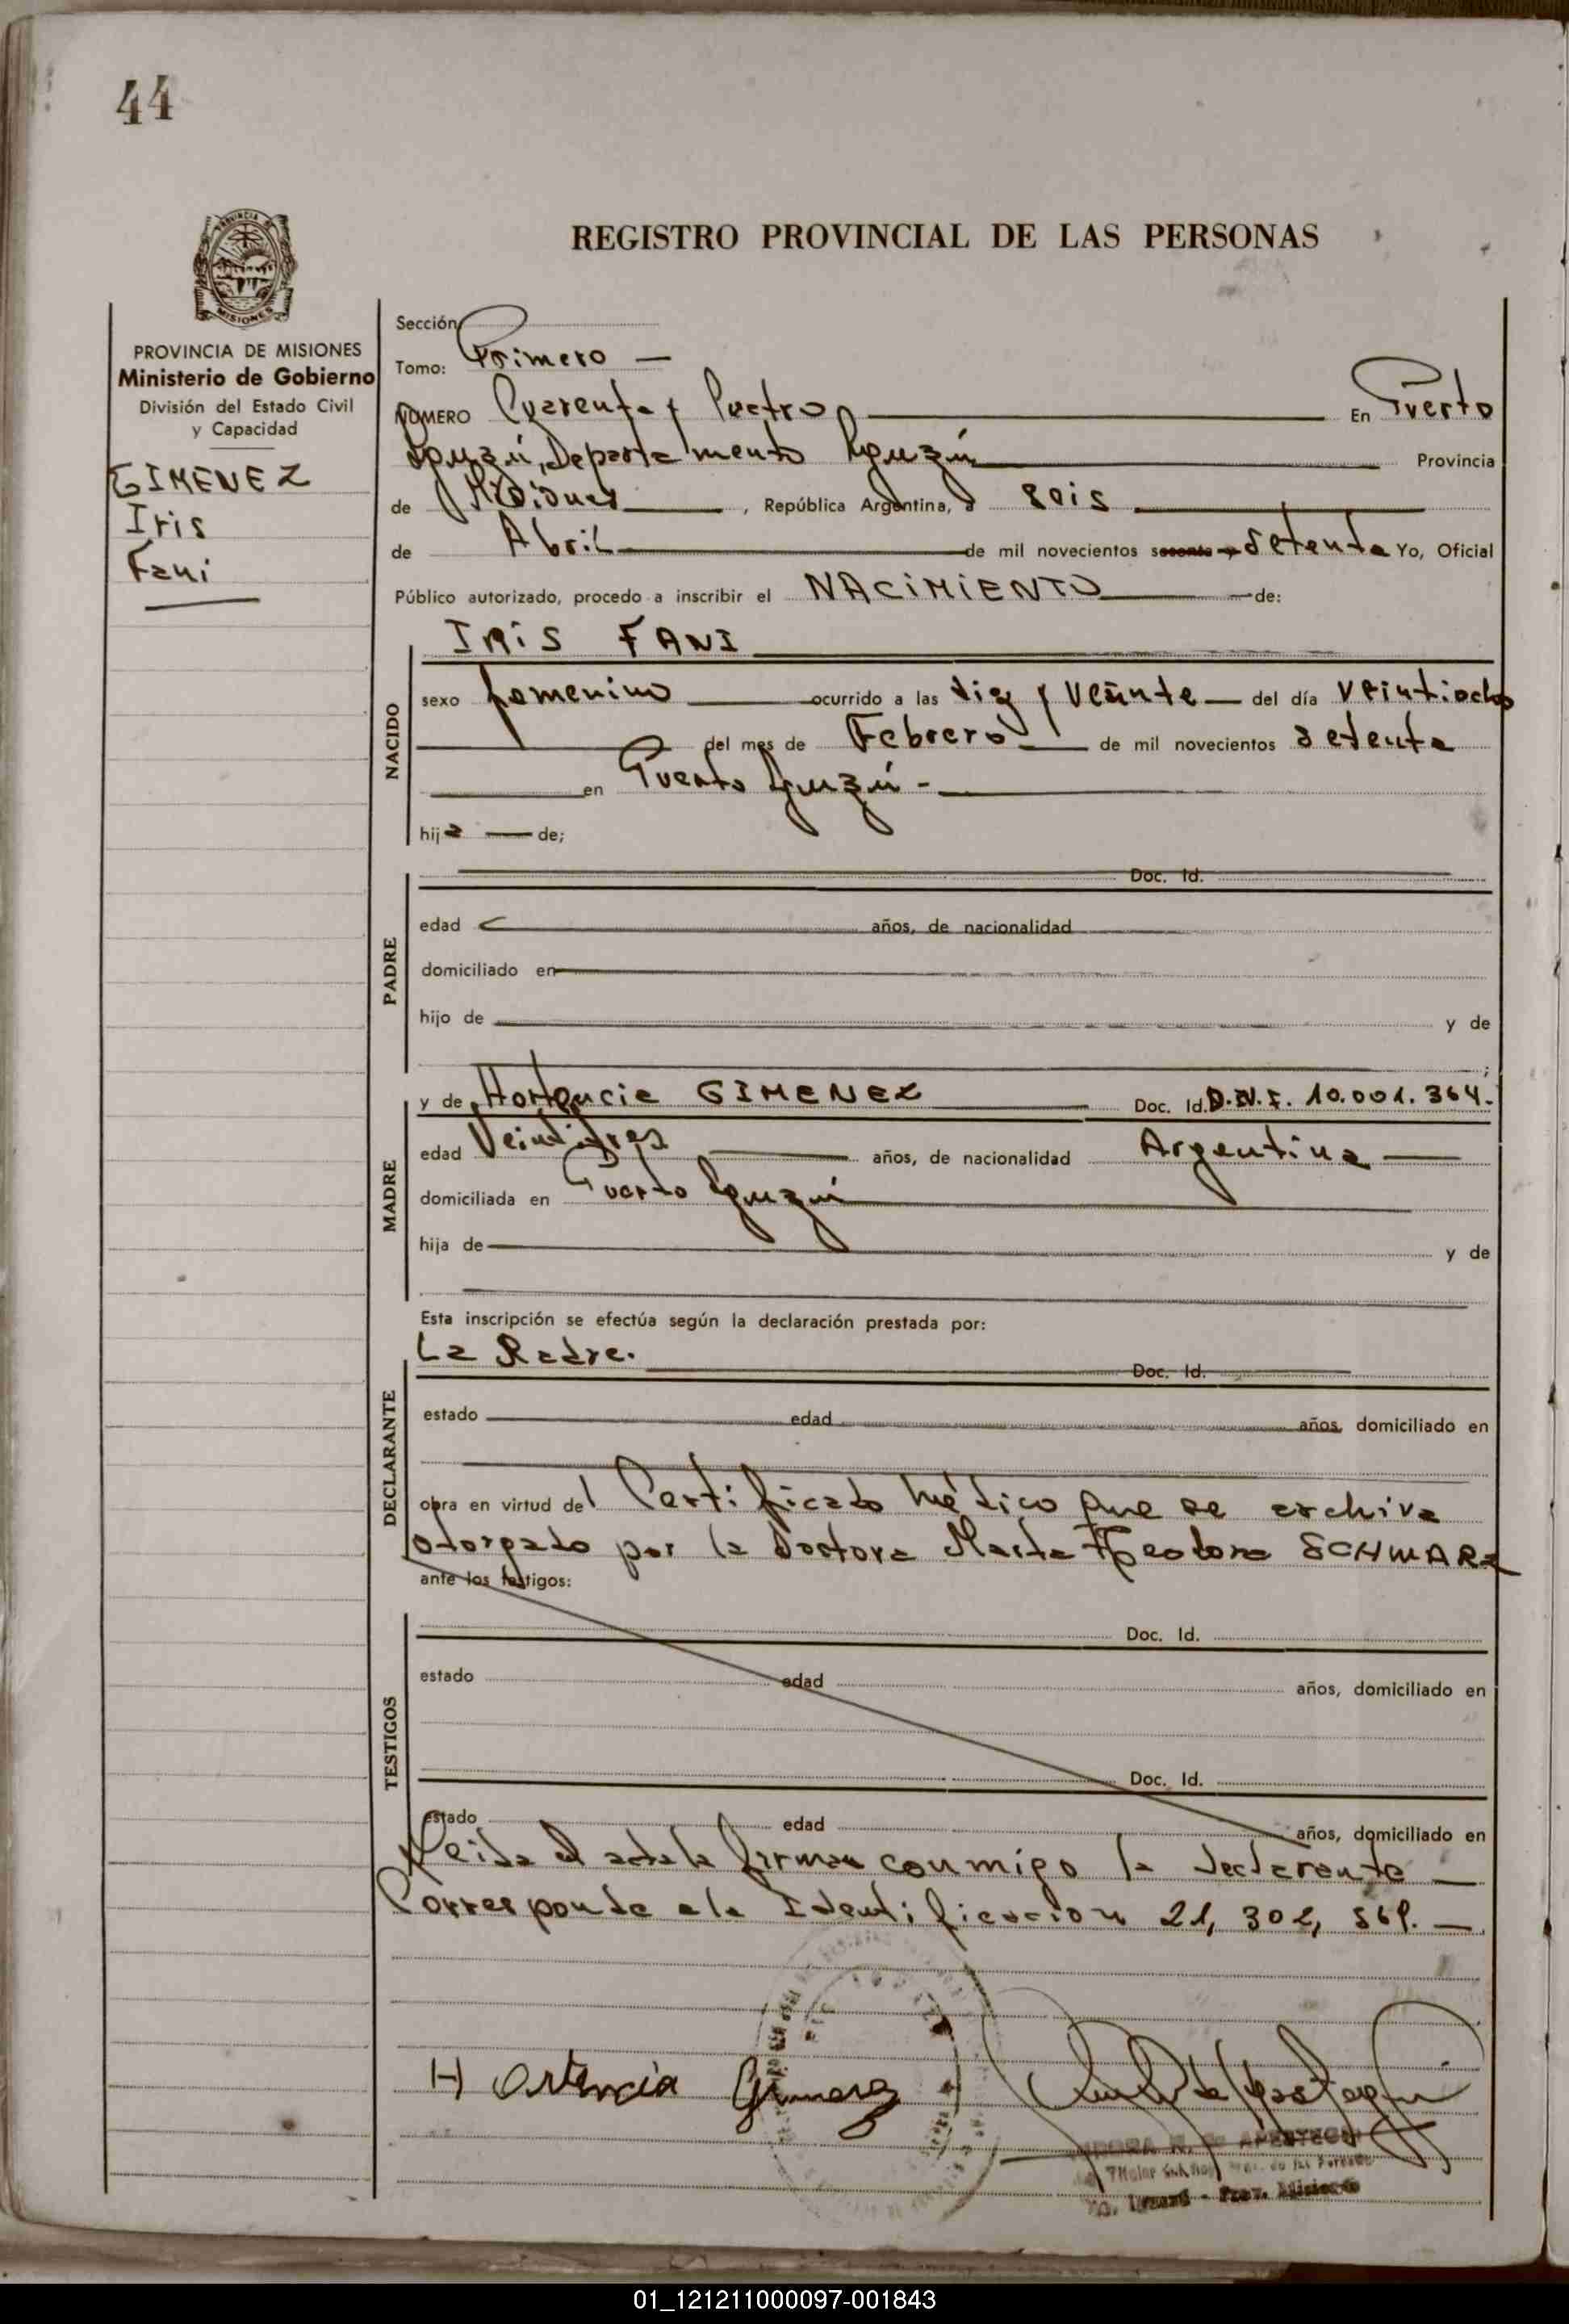 44
PROVINCIA DE MISIONES
Ministerio de Gobierno
División del Estado Civil
y Capacidad
GIMENEZ
Iris
Fani
REGISTRO PROVINCIAL DE LAS PERSONAS
Sección
Tomo: Primero —
NÚMERO Cuarenta y Cuatro En Puerto
Iguazú, Departamento Iguazú Provincia
de Misiones, República Argentina, a seis
de Abril de mil novecientos setenta Yo, Oficial
Público autorizado, procedo a inscribir el NACIMIENTO de:
NACIDO
IRIS FANI
sexo femenino ocurrido a las diez y veinte del día veintiocho
del mes de Febrero de mil novecientos setenta
en Puerto Iguazú -
hija de;
PADRE
Doc. Id.
edad años, de nacionalidad
domiciliado en
hijo de y de
;
MADRE
y de Hortencia GIMENEZ Doc. Id. D.N.I. 10.001.364.
edad Veintitres años, de nacionalidad Argentina
domiciliada en Puerto Iguazú
hija de y de
Esta inscripción se efectúa según la declaración prestada por:
DECLARANTE
La Madre. Doc. Id.
estado edad años, domiciliado en
obra en virtud del Certificado Médico que se archiva
otorgado por la Doctora Marta Teodora SCHWARZ
ante los testigos:
TESTIGOS
Doc. Id.
estado edad años, domiciliado en
Doc. Id.
estado edad años, domiciliado en
Leida el acta la firman conmigo la declarante —
Corresponde a la Identificacion 21, 302, —
Hortencia Gimenez
Iguazú - Prov. Misiones
01_121211000097-001843